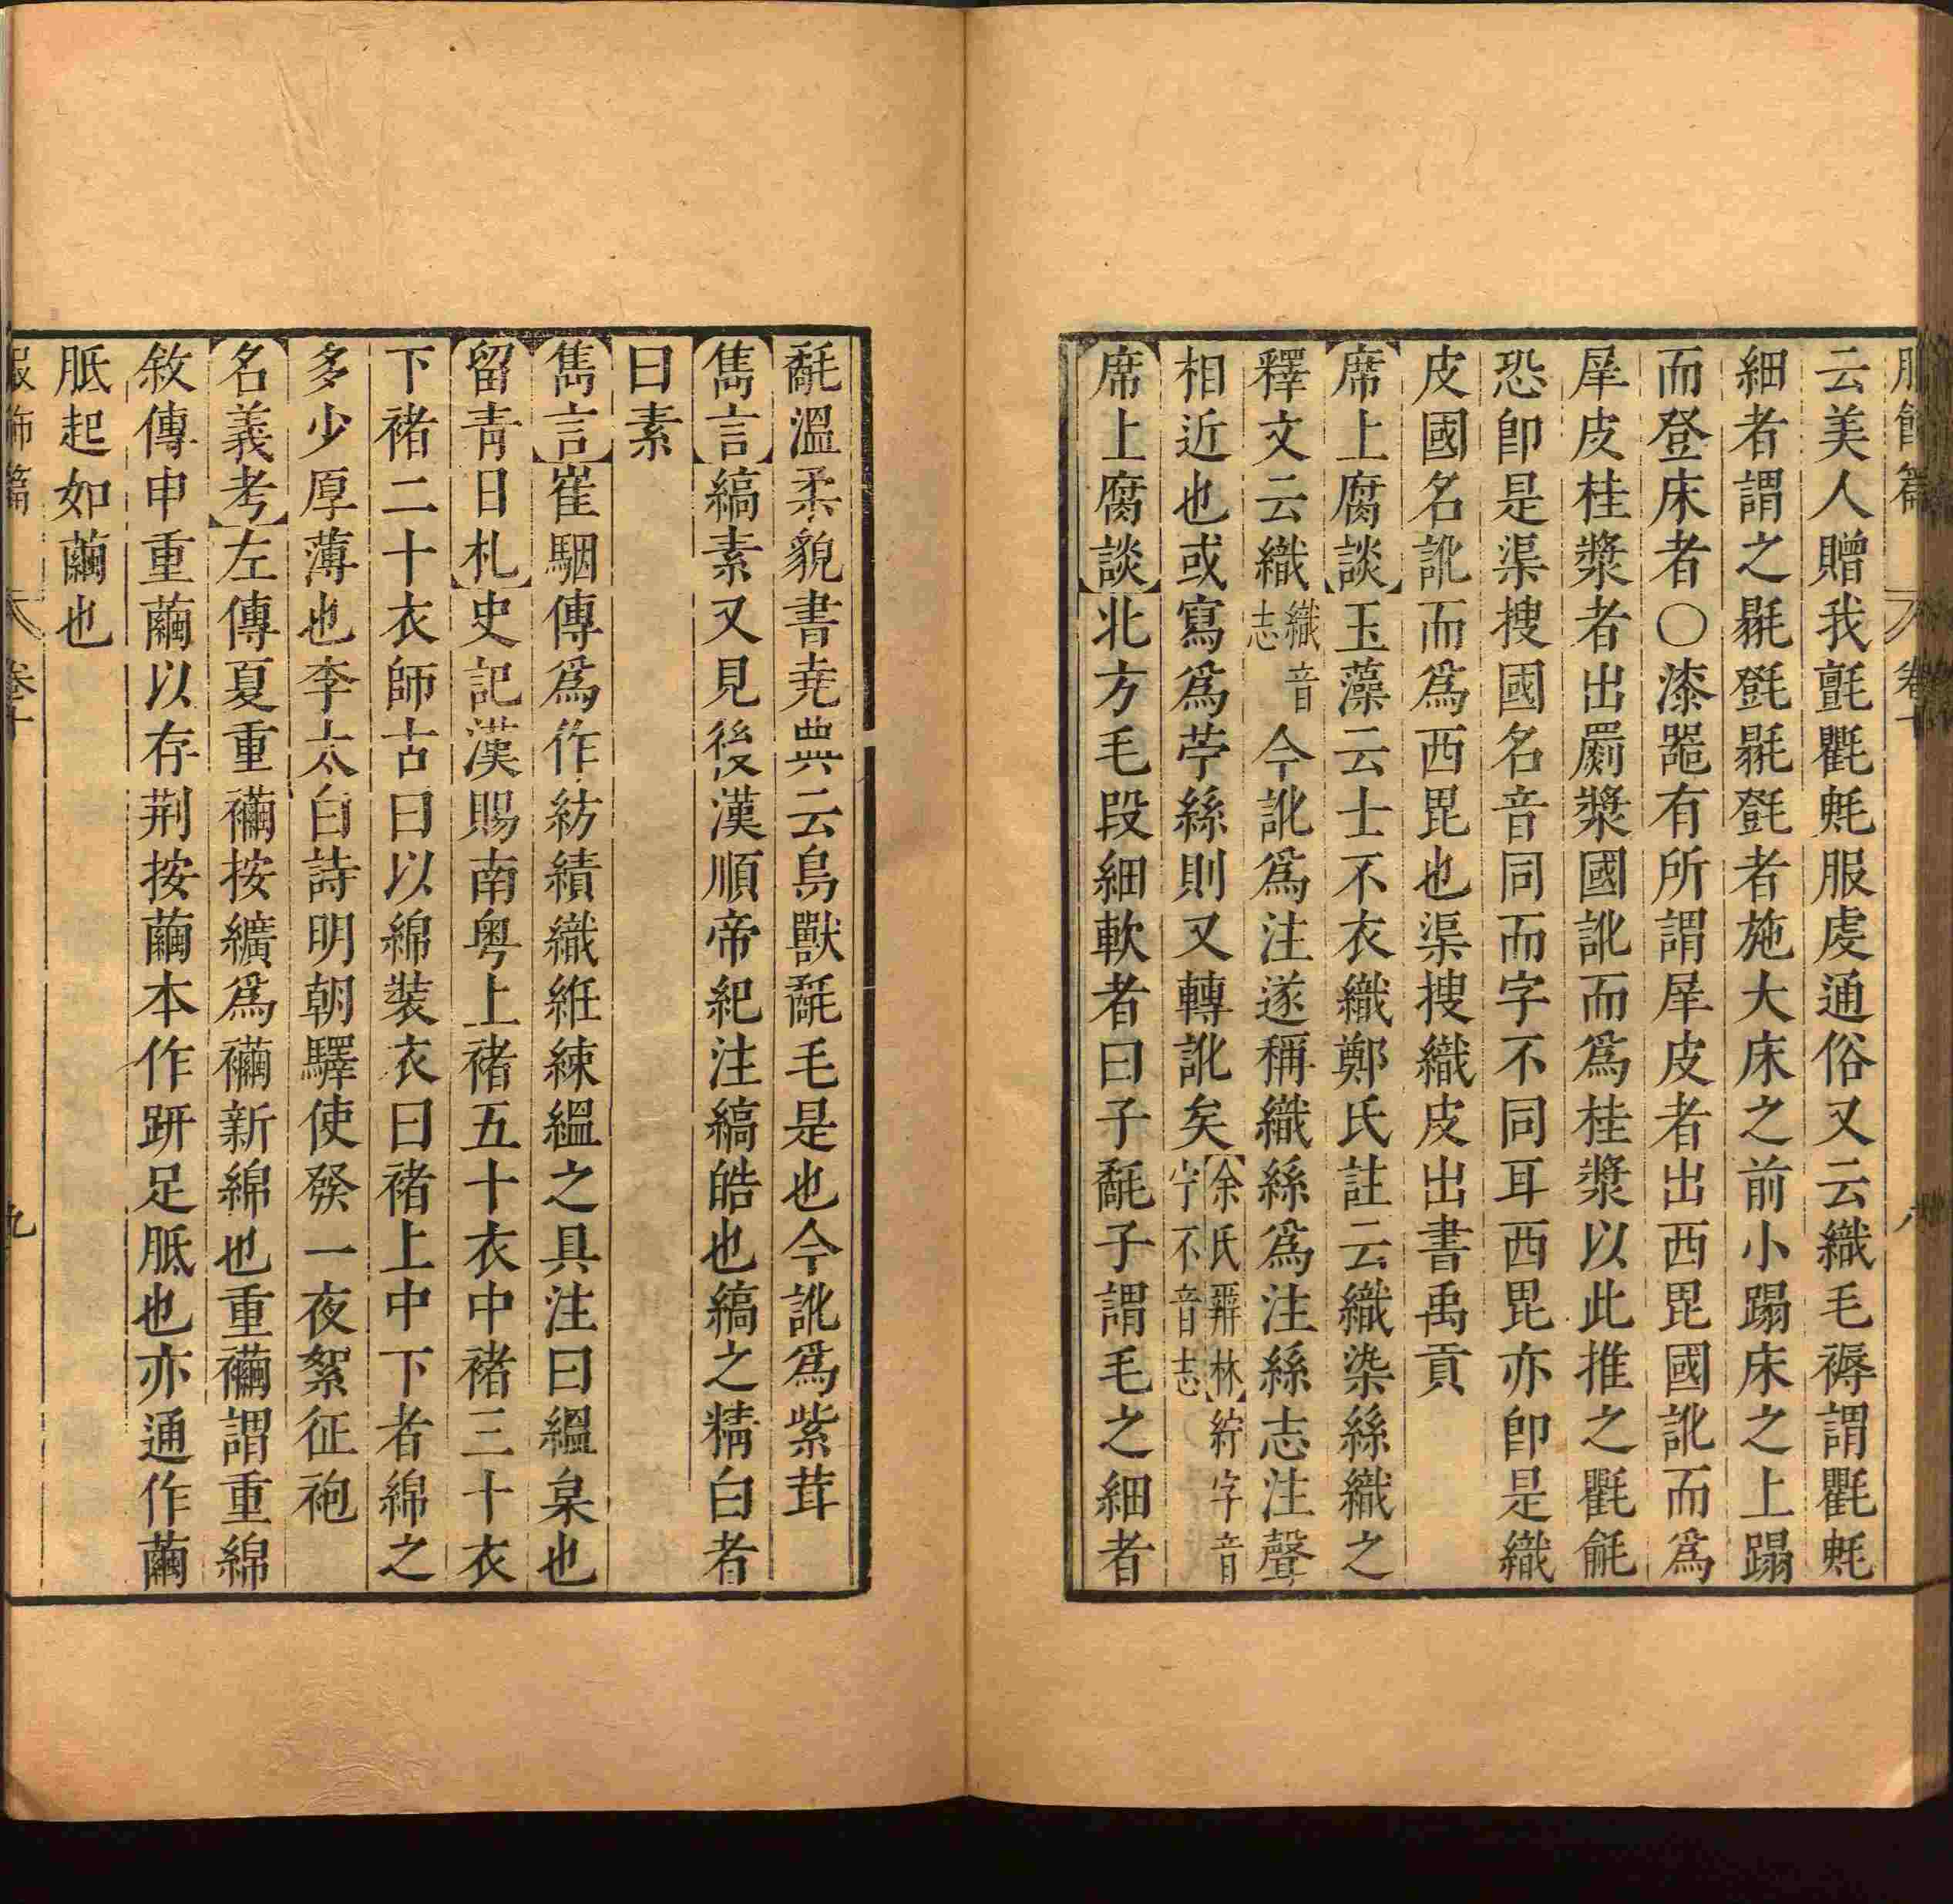 服飾篇 卷十 八
云美人贈我氈氍毹服虔通俗又云織毛褥謂氍毹
細者謂之㲪㲪㲪㲪者施大床之前小蹋床之上蹋
而登床者〇漆器有所謂犀皮者出西毘國訛而爲
犀皮桂漿者出罽漿國訛而爲桂漿以此推之氍毹
恐卽是渠搜國名音同而字不同耳西毘亦卽是織
皮國名訛而爲西毘也渠搜織皮出書禹貢
席上腐談玉藻云士不衣織鄭氏註云織染絲織之
釋文云織織音志今訛爲注遂稱織絲爲注絲志注聲
相近也或寫爲苧絲則又轉訛矣余氏辭林紵字音宁不音志
席上腐談北方毛段細軟者曰子氄子謂毛之細者
氄溫柔貌書堯典云鳥獸氄毛是也今訛爲紫茸
雋言縞素又見後漢順帝紀注縞皓也縞之精白者
曰素
雋言崔駰傳爲作紡績織絍練縕之具注曰縕枲也
留青日札史記漢賜南粤上褚五十衣中褚三十衣
下褚二十衣師古曰以綿裝衣曰褚上中下者綿之
多少厚薄也李太白詩明朝驛使發一夜絮征袍
名義考左傳夏重襺按纊爲襺新綿也重襺謂重綿
敘傳申重繭以存荆按繭本作趼足胝也亦通作繭
胝起如繭也
服飾篇 卷十 九